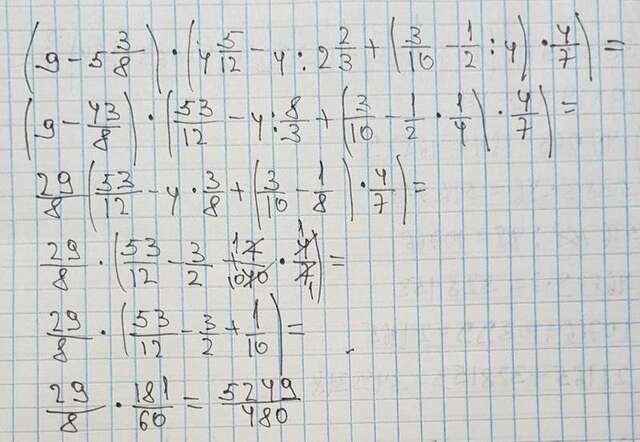 (9 - 5 3/8) · (4 5/12 - 4 : 2 2/3 + (3/10 - 1/2 : 4) · 4/7) =
(9 - 43/8) · (53/12 - 4 : 8/3 + (3/10 - 1/2 · 1/4) · 4/7) =
29/8 (53/12 - 4 · 3/8 + (3/10 - 1/8) · 4/7) =
29/8 · (53/12 - 3/2 + · 4/7) =
29/8 · (53/12 - 3/2 + 1/10) =
29/8 · 181/60 = 5249/480